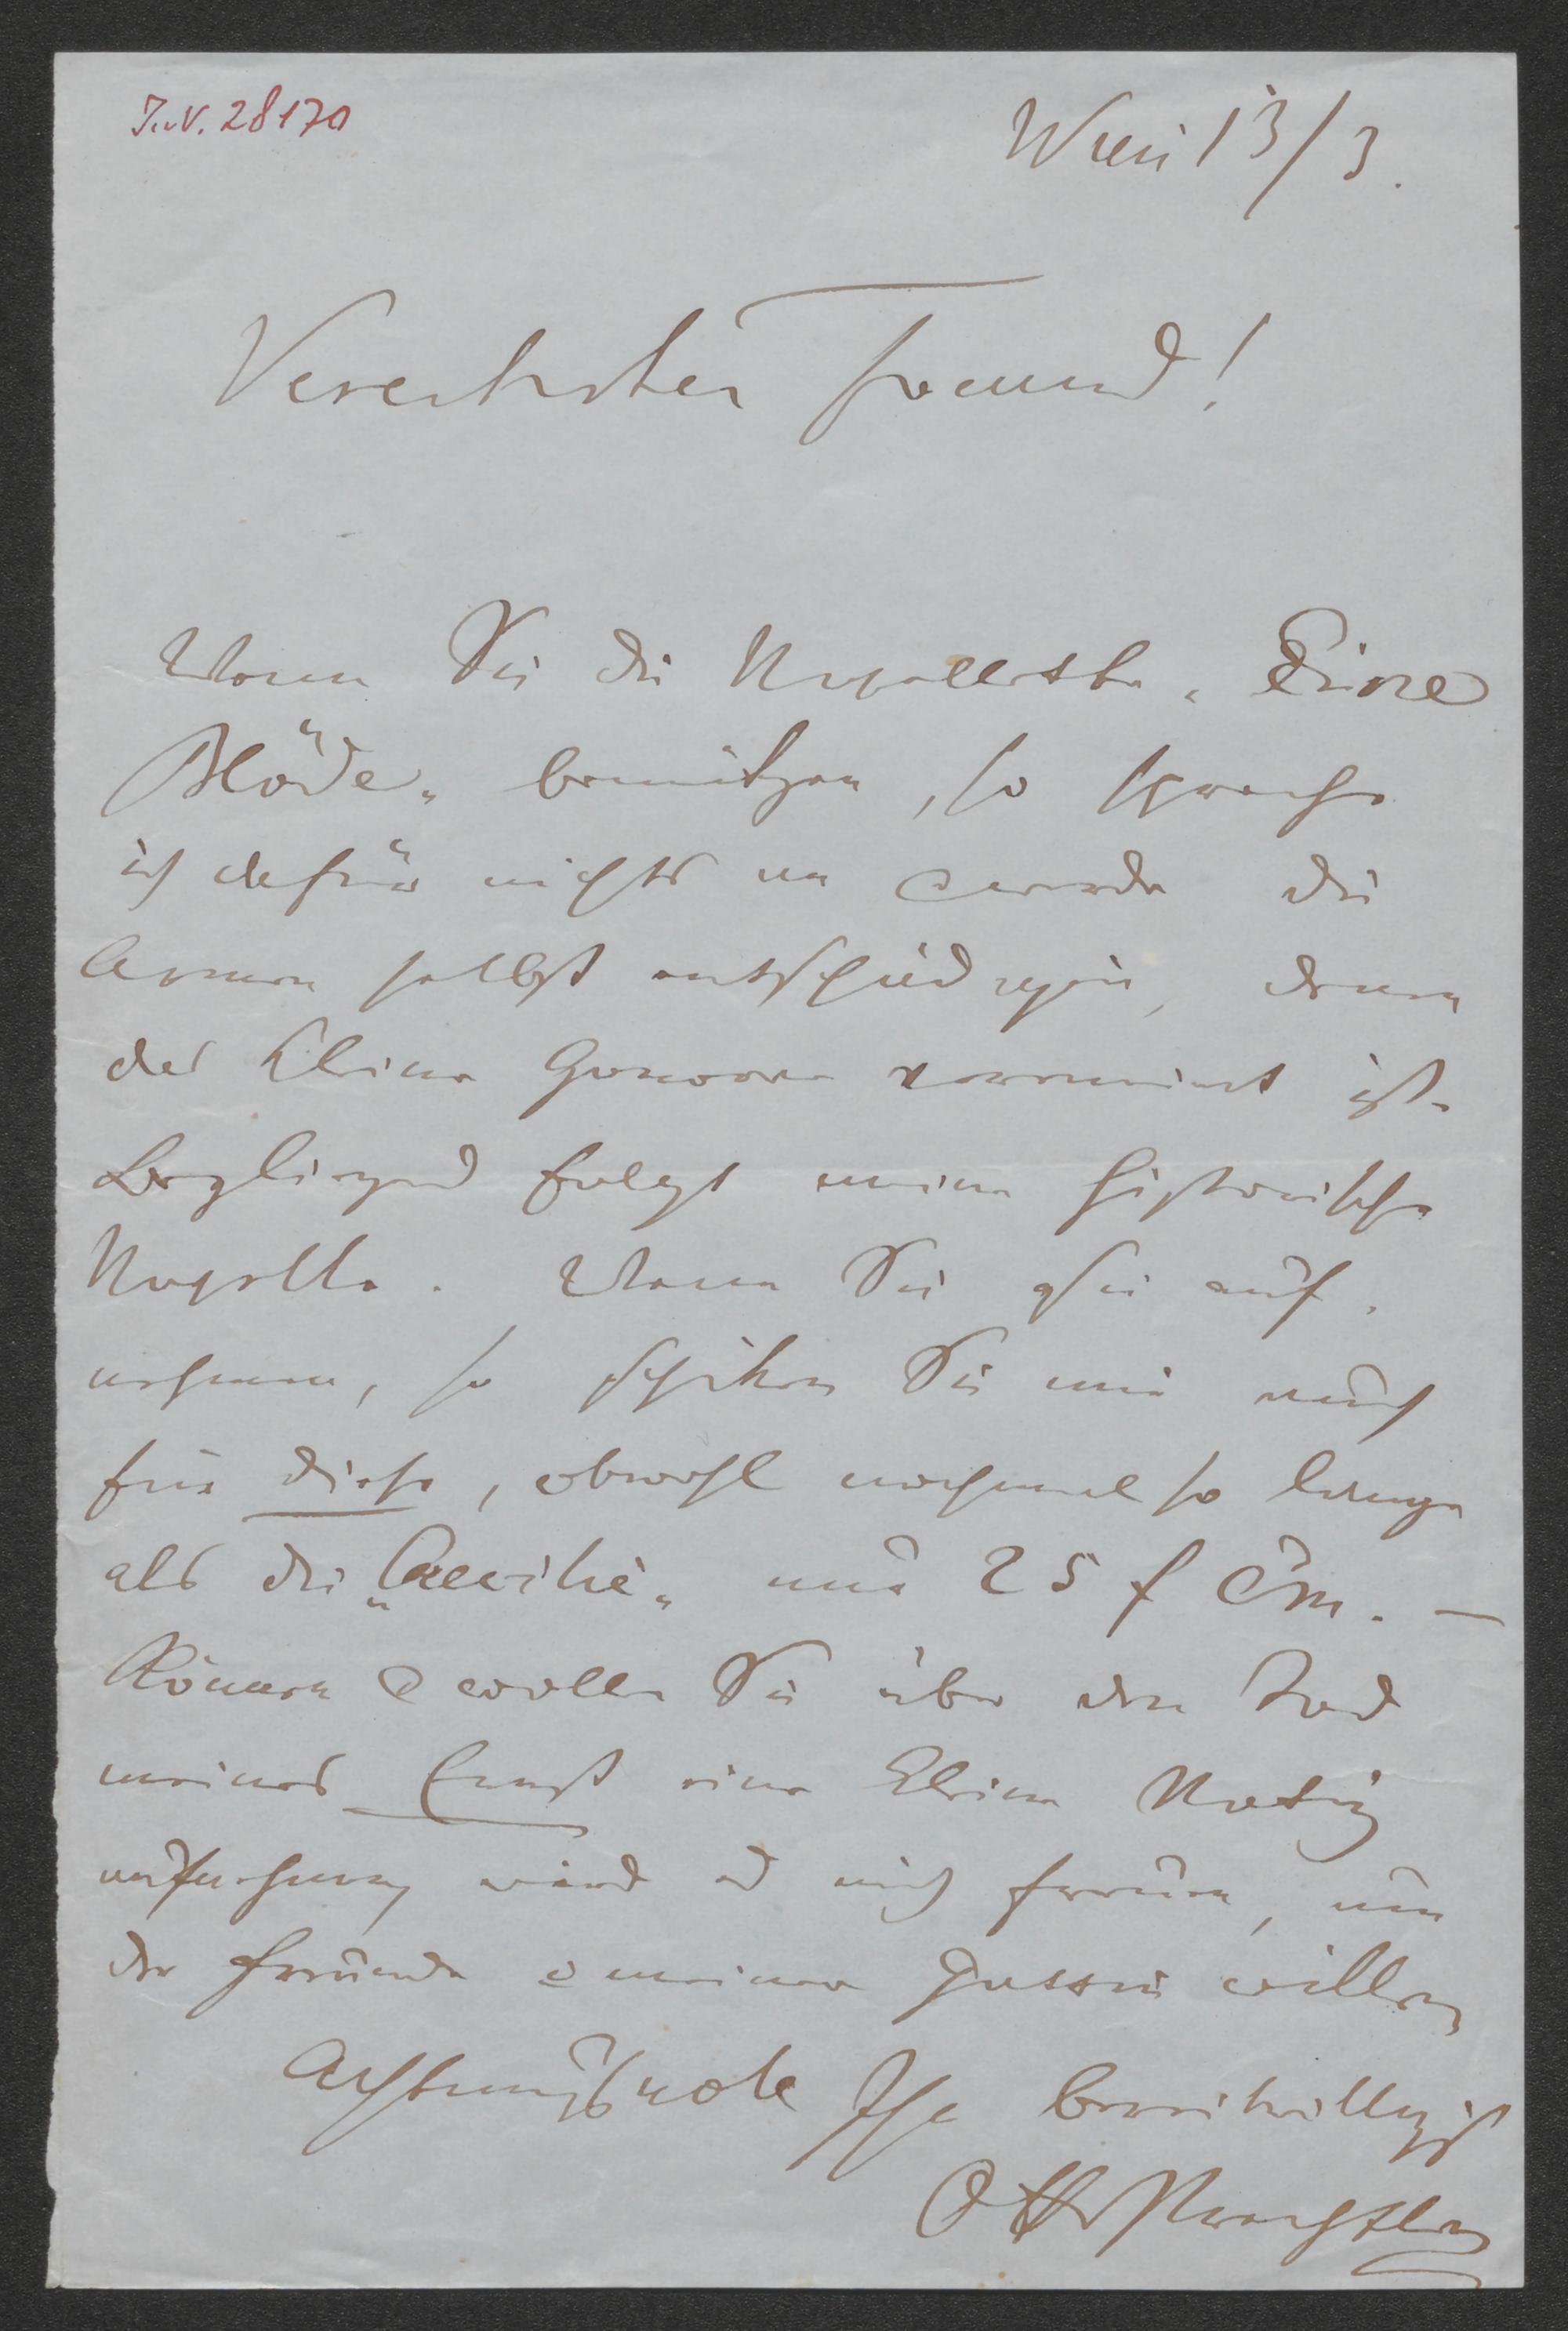 J.N. 28170
Wien 13/3.
Verehrter Freund!
Wenn Sie die Novellette „Eine
Blöde“ benützen, so spreche
ich dafür nichts an & werde die
Armen selbst entschädigen, denen
das kleine Honorar vermeint ist.
Beyliegend folgt meine historische
Novelle. Wenn Sie sie auf-
nehmen, so schiken Sie mir auch
für diese, obwohl nochmal so lange
als die „Caecilie“ nur 25 f Cm. —
Können & wollen Sie über den Tod
meines Ernst eine kleine Notiz
aufnehmen wird es mich freuen, um
der Freunde & meiner Gattin willen
Achtungsvoll Ihr bereitwilligst
Otto Prechtler